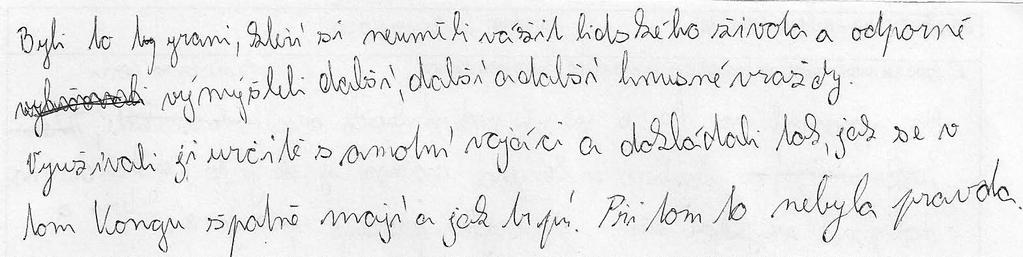 Byli to tyrani, kteří si neuměli vážit lidského života a odporně
vymýšleli další, další a další hnusné vraždy.
Využívali ji určitě samotní vojáci a dokládali tak, jak se v
tom Kongu špatně mají a jak trpí. Při tom to nebyla pravda.